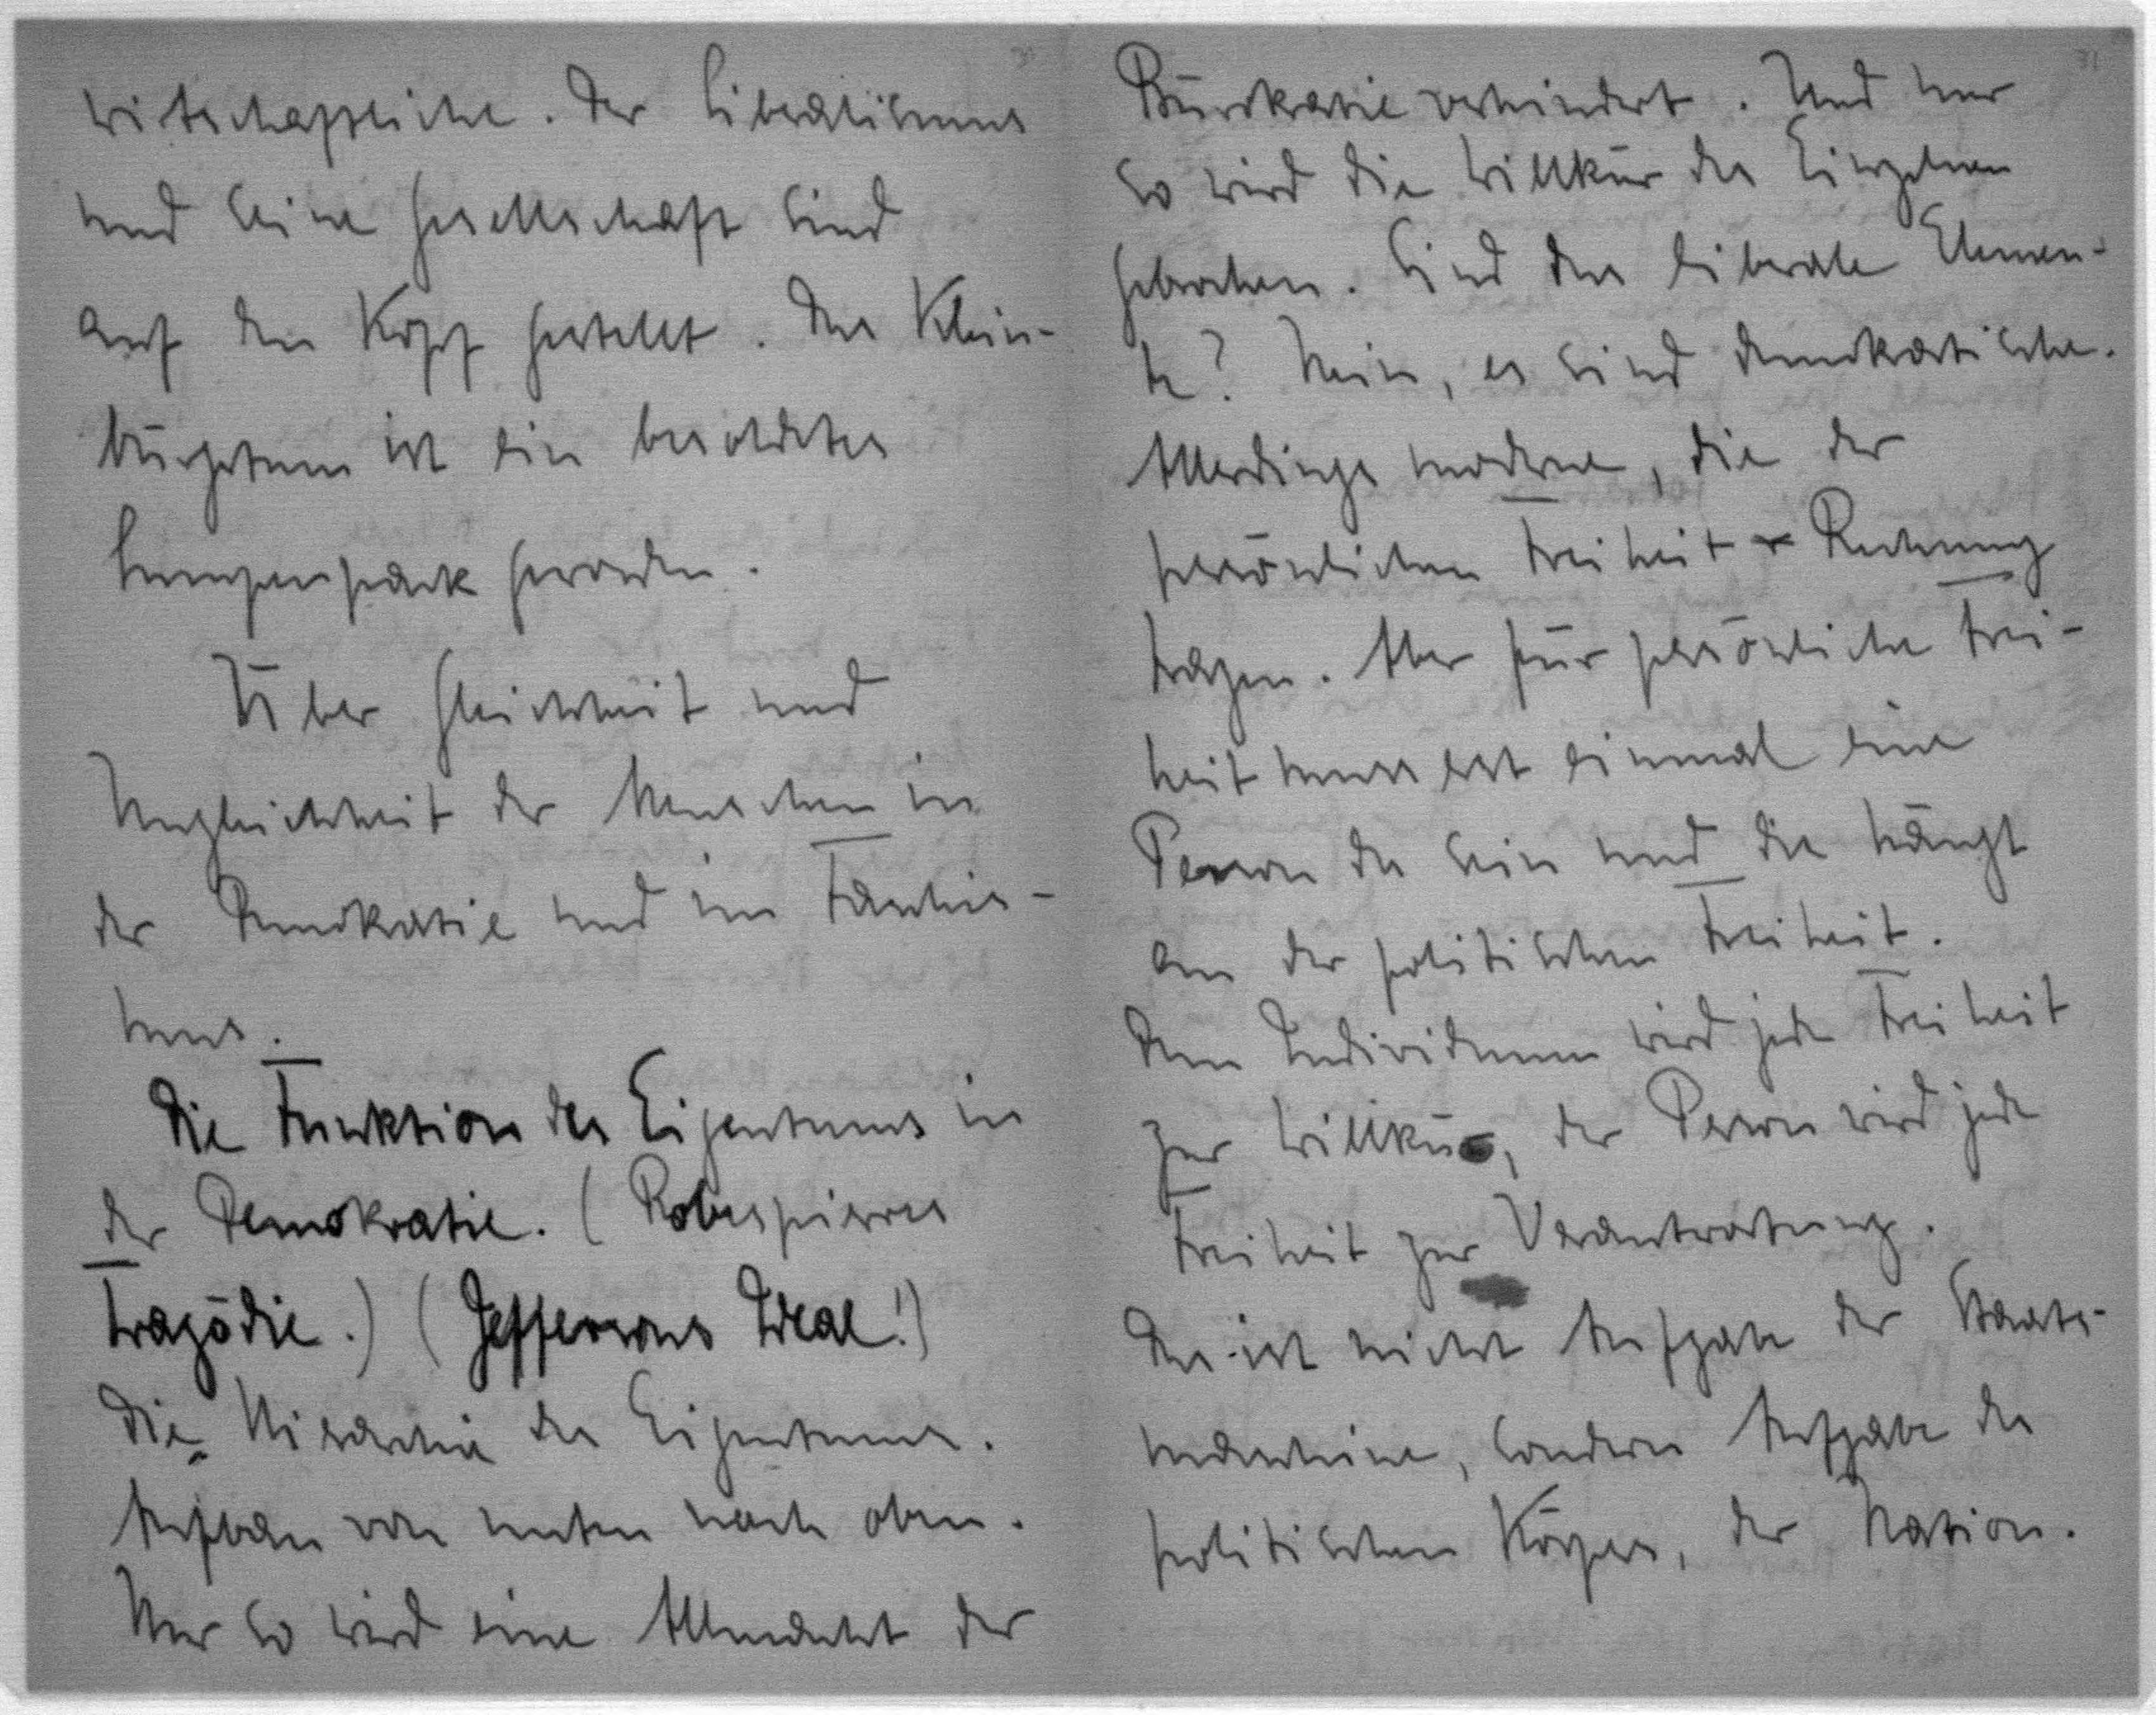 wirtschaftliche. Der Liberalismus
und seine Gesellschaft sind
auf den Kopf gestellt. Das Klein-
bürgertum ist ein besoldetes
Lumpenpack geworden.
Über Gleichheit und
Ungleichheit der Menschen in
der Demokratie und im Faschis-
mus.
Die Funktion des Eigentums in
der Demokratie. (Robespierres
Tragödie.) (Jeffersons Ideal!)
Die Hierarchie des Eigentums.
Aufbau von unten nach oben.
Nur so wird eine Allmacht der
Bürokratie verhindert. Und nur
so wird die Willkür des Einzelnen
gebrochen. Sind das liberale Elemen-
te? Nein, es sind demokratische.
Allerdings moderne, die der
persönlichen Freiheit Rechnung
tragen. Aber für persönliche Frei-
heit muss erst einmal eine
Person da sein und die hängt
an der politischen Freiheit.
Dem Individuum wird jede Freiheit
zur Willkür, der Person wird jede
Freiheit zur Verantwortung.
Das ist nicht Aufgabe der Staats-
maschine, sondern Aufgabe des
politischen Körpers, der Nation.